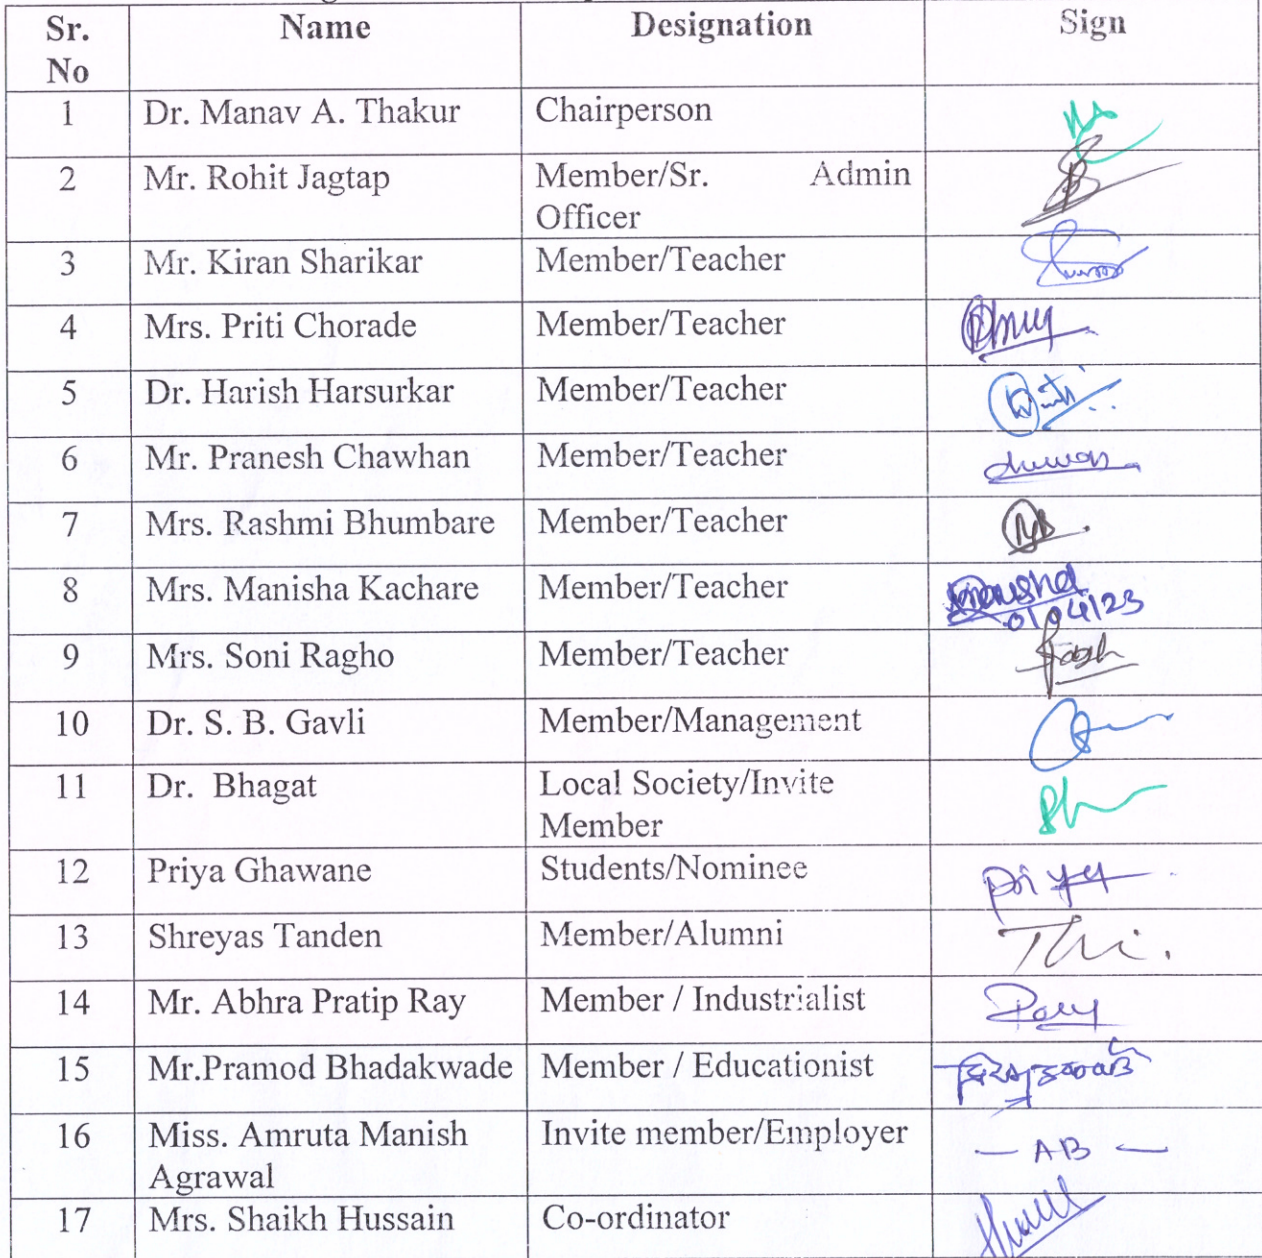 Sr. No Name Designation Sign
1 Dr. Manav A. Thakur Chairperson
2 Mr. Rohit Jagtap Member/Sr. Admin
Officer
3 Mr. Kiran Sharikar Member/Teacher
4 Mrs. Priti Chorade Member/Teacher
5 Dr. Harish Harsurkar Member/Teacher
6 Mr. Pranesh Chawhan Member/Teacher
7 Mrs. Rashmi Bhumbare Member/Teacher
8 Mrs. Manisha Kachare Member/Teacher
01/04/23
9 Mrs. Soni Ragho Member/Teacher
10 Dr. S. B. Gavli Member/Management
11 Dr. Bhagat Local Society/Invite
Member
12 Priya Ghawane Students/Nominee
13 Shreyas Tanden Member/Alumni
14 Mr. Abhra Pratip Ray Member / Industrialist
15 Mr.Pramod Bhadakwade Member / Educationist
16 Miss. Amruta Manish Invite member/Employer — AB —
Agrawal
17 Mrs. Shaikh Hussain Co-ordinator